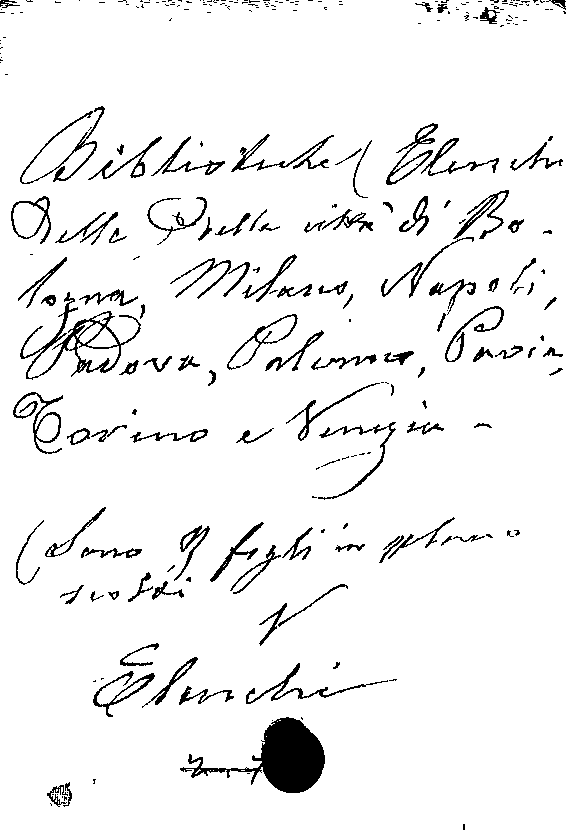 Biblioteche (Elenchi
delle) della città di Bo-
logna, Milano, Napoli,
Padova, Palermo, Pavia,
Torino e Venezia -
(Sono fogli in plano
sciolti
V
Elenchi